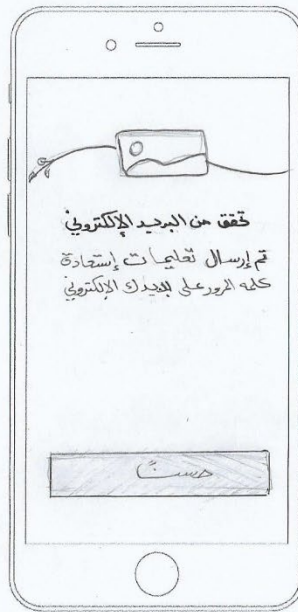 تحقق من البريد الإلكتروني
تم إرسال تعليمات إستعادة
كلمه المرور على بريدك الإلكتروني
حسنًا